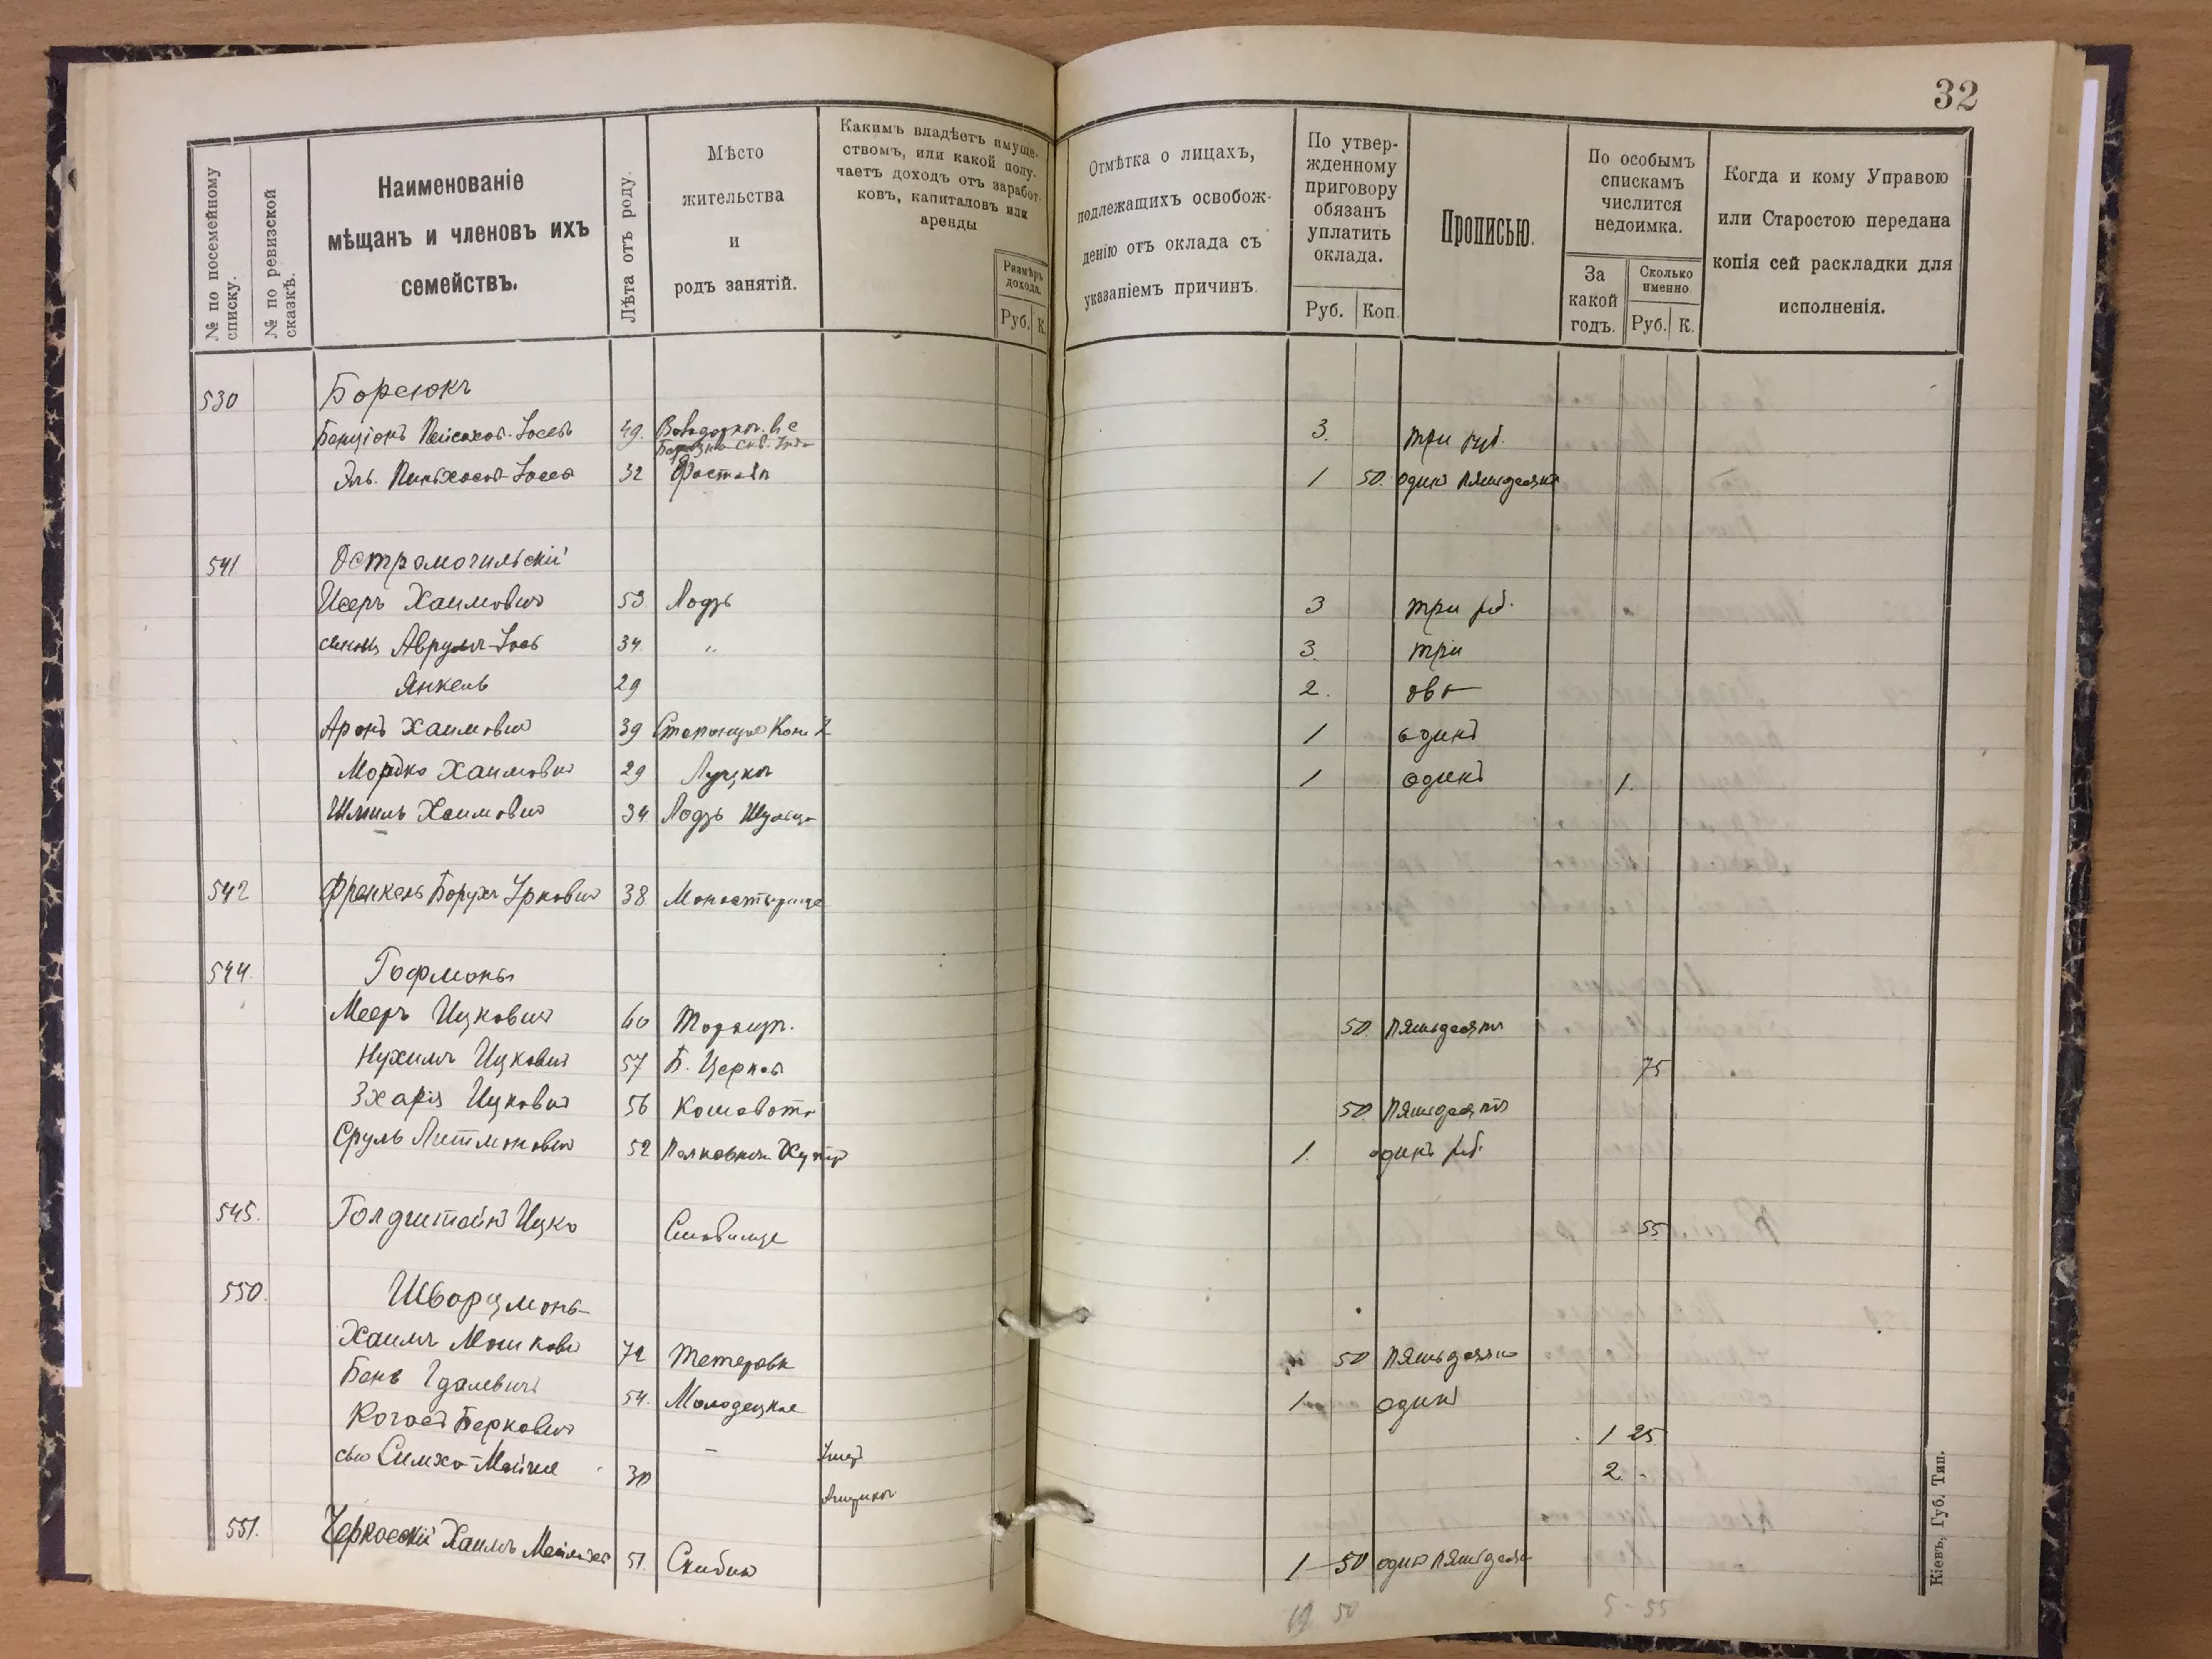 32
№ по посемейному списку.
№ по ревизской сказкѣ.
Наименованіе
мѣщанъ и членовъ ихъ
семействъ.
Лѣта отъ роду.
Мѣсто
жительства
и
родъ занятій.
Какимъ владѣетъ имуще-
ствомъ, или какой полу-
чаетъ доходъ отъ заработ-
ковъ, капиталовъ или
аренды
Размѣръ
дохода.
Руб. К.
Отмѣтка о лицахъ,
подлежащихъ освобож-
денію отъ оклада съ
указаніемъ причинъ.
По утвер-
жденному
приговору
обязанъ
уплатить
оклада.
Руб. Коп.
Прописью.
По особымъ
спискамъ
числится
недоимка.
За
какой
годъ.
Сколько
именно.
Руб. К.
Когда и кому Управою
или Старостою передана
копія сей раскладки для
исполненія.
530 Борсюкъ
Бенціонъ Пейсахов-Іосев 49. 3. три руб.
Эль. Пинхасов-Іосев 32 Фастовъ 1 50. один пятьдесят
541 Остромогильскій
Исеръ Хаимович 53. Лодзь 3 три руб.
сынъ Аврумъ-Іось 34. " 3. три
Янкель 29 2. два
Аронъ Хаимович 39 1 один
Мордко Хаимович 29 Луцкъ 1 один 1.
Шмиль Хаимович 34. Лодзь
542 Френкель Борухъ Іркович 38. Монастырище
544. Гофманъ
Мееръ Ицкович 60 Торгиц. 50. пятьдесят
Нухимъ Ицкович 57 Б. Церков 75
Зхарія Ицкович 56 Кошевато 50. пятьдесят
Сруль Литманович 52 1. один руб.
545. Голдштейн Ицко Ставище 55
550. Шварцманъ
Хаимъ Мошкови 72 Тетеровк 50 пятьдесят
Бенъ Гдалевич 54. Молодецкое 1 один
Беркович 1 25
сын Симха-Мойше 30 2. -
551. Черкасскій Хаимъ 51. Скибин 1 50 один пятьдеся
19 50 5-55
Кіевъ, Губ. Тип.